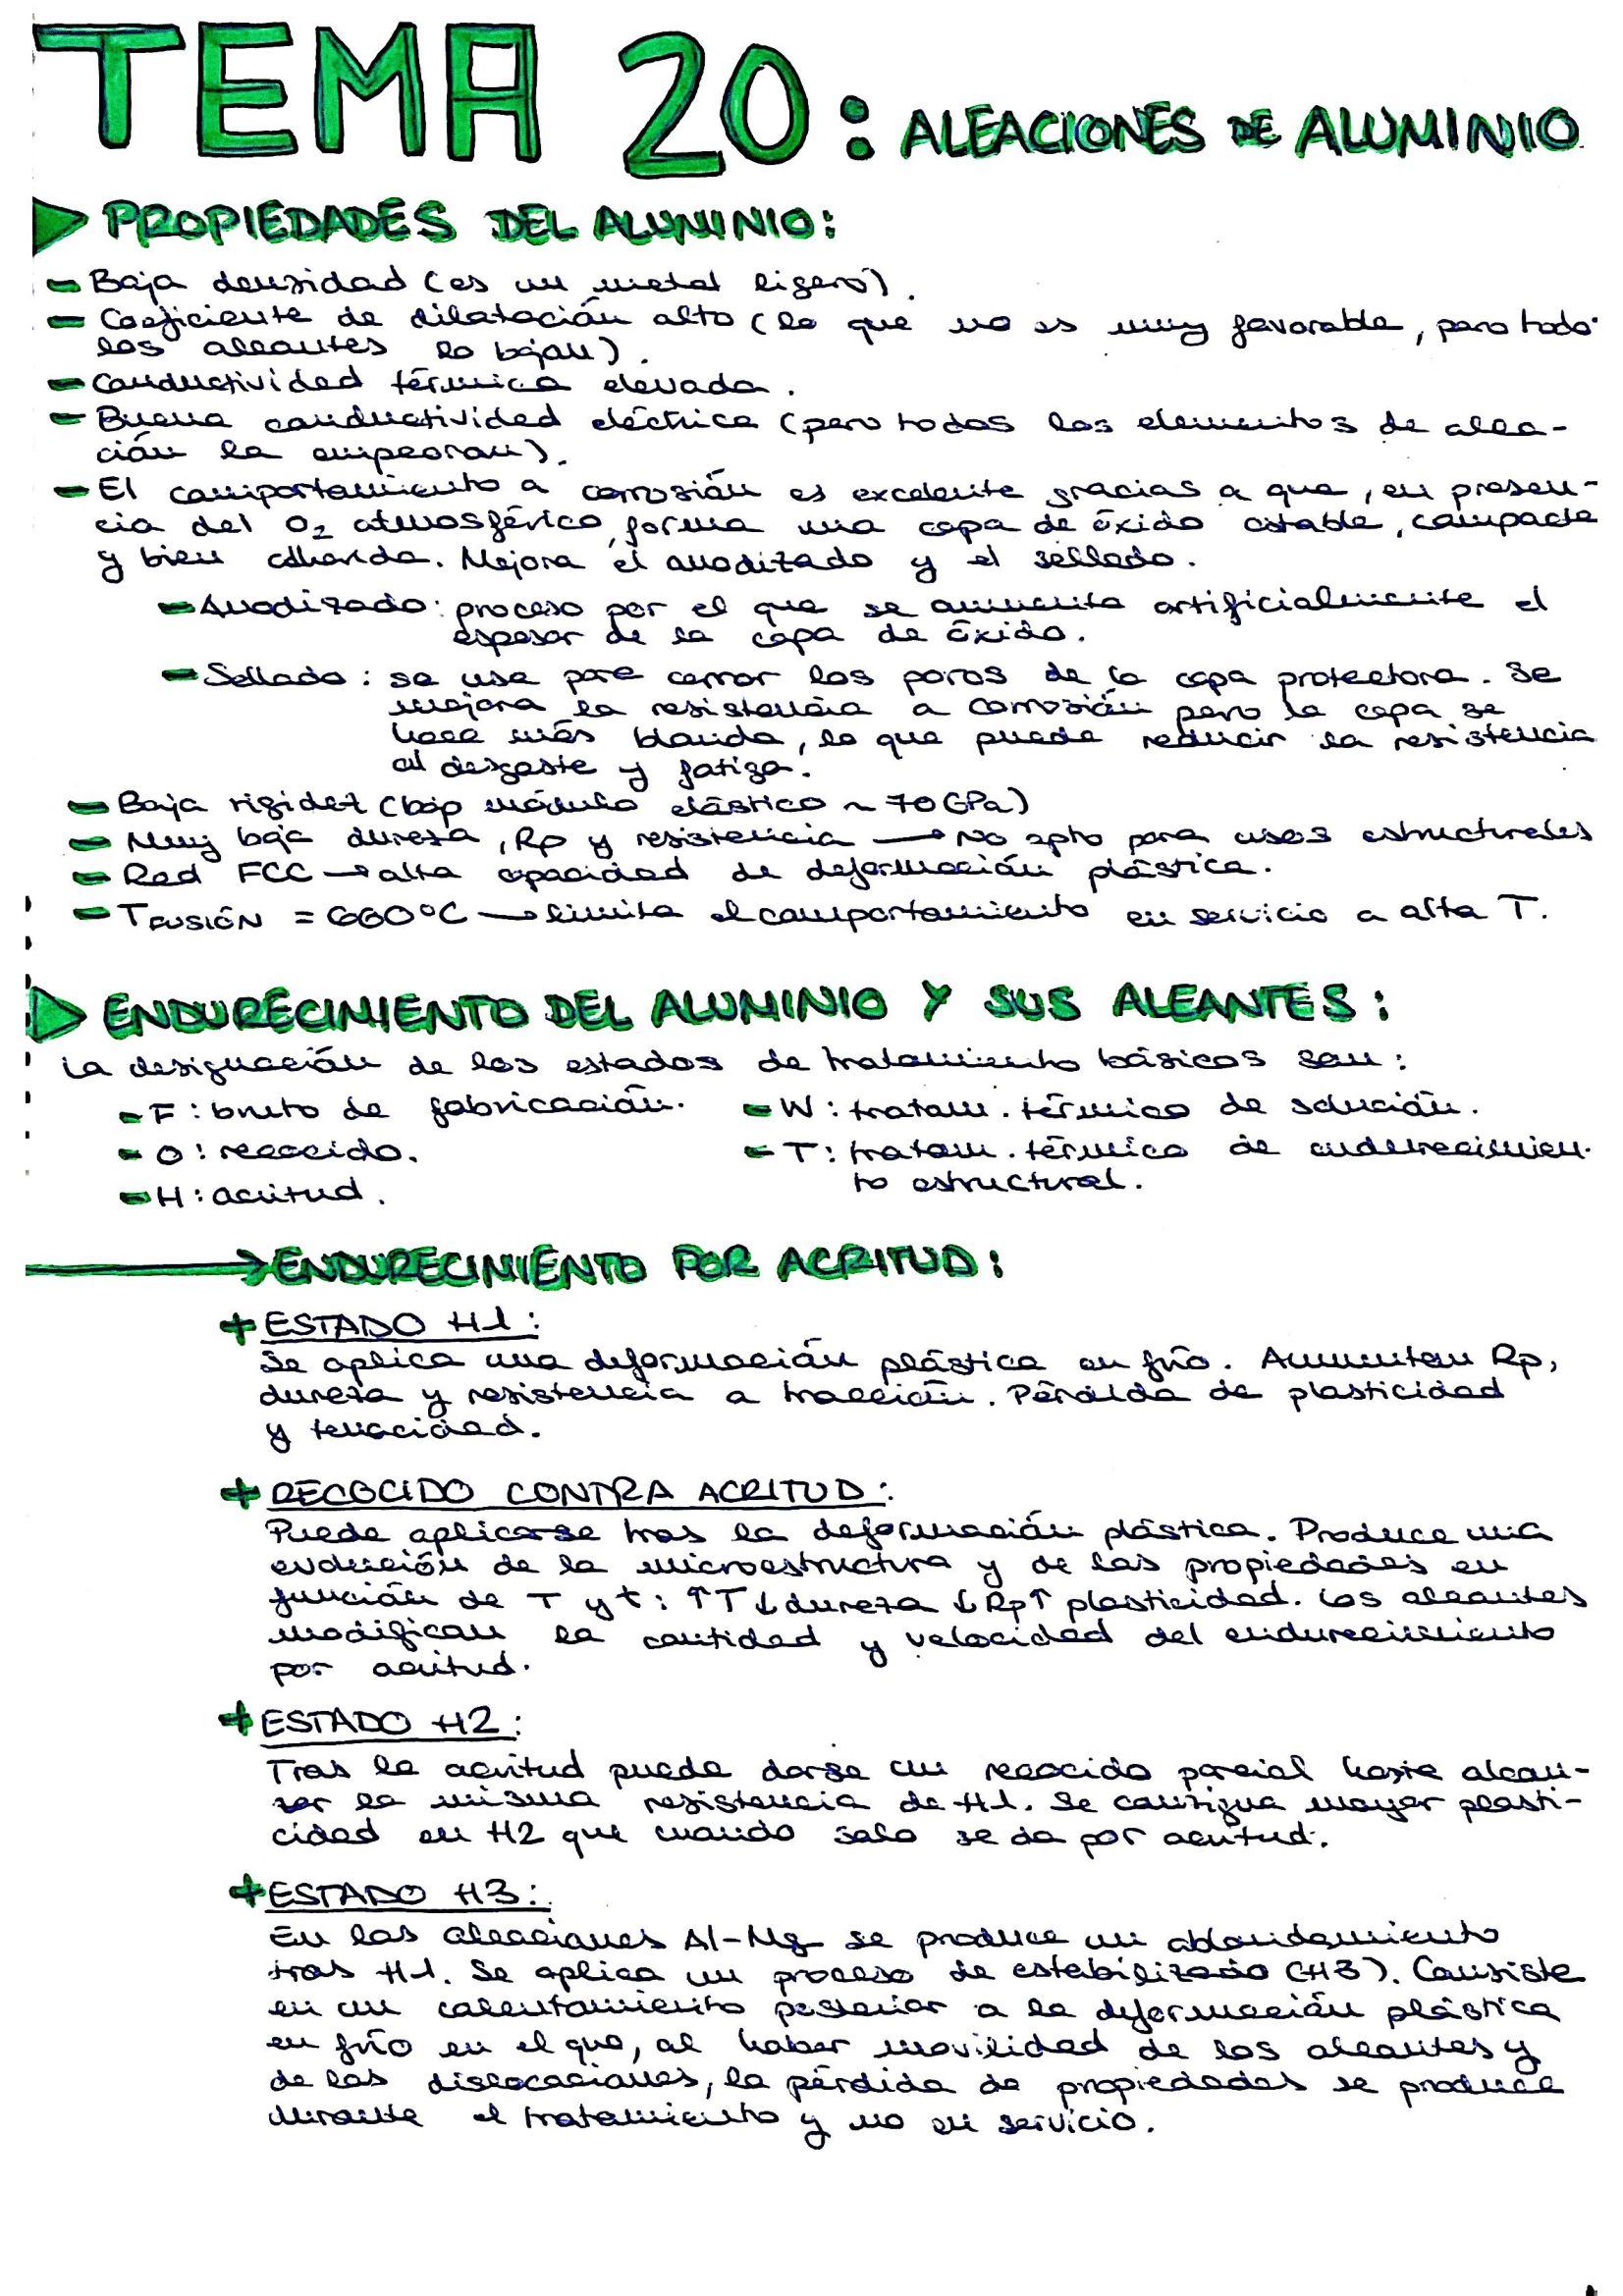 TEMA 20: ALEACIONES DE ALUMINIO
PROPIEDADES DEL ALUMINIO:
- Baja densidad (es un metal ligero).
- Coeficiente de dilatación alto (lo que no es muy favorable, pero todo
los aleantes lo bajan).
- Conductividad térmica elevada.
- Buena conductividad eléctrica (pero todos los elementos de alea-
ción la empeoran).
- El comportamiento a corrosión es excelente gracias a que, en presen-
cia del O₂ atmosférico, forma una capa de óxido estable, compacta
y bien adherida. Mejora el anodizado y el sellado.
- Anodizado: proceso por el que se aumenta artificialmente el
espesor de la capa de óxido.
- Sellado: se usa para cerrar los poros de la capa protectora. Se
mejora la resistencia a corrosión pero la capa se
hace más blanda, lo que puede reducir la resistencia
al desgaste y fatiga.
- Baja rigidez (bajo módulo elástico ~ 70 GPa)
- Muy baja dureza, Rp y resistencia → No apto para usos estructurales
- Red FCC → alta capacidad de deformación plástica.
- T FUSIÓN = 660°C → limita el comportamiento en servicio a alta T.
ENDURECIMIENTO DEL ALUMINIO Y SUS ALEANTES:
La designación de los estados de tratamiento básicos son:
- F: bruto de fabricación. - W: tratam. térmico de solución.
- O: recocido. - T: tratam. térmico de endurecimien-
to estructural.
- H: acritud.
→ ENDURECIMIENTO POR ACRITUD:
+ ESTADO H1:
Se aplica una deformación plástica en frío. Aumentan Rp,
dureza y resistencia a tracción. Pérdida de plasticidad
y tenacidad.
+ RECOCIDO CONTRA ACRITUD:
Puede aplicarse tras la deformación plástica. Produce una
evolución de la microestructura y de las propiedades en
función de T y t: ↑T ↓dureza ↓Rp ↑ plasticidad. Los aleantes
modifican la cantidad y velocidad del endurecimiento
por acritud.
+ ESTADO H2:
Tras la acritud puede darse un recocido parcial hasta alcan-
zar la misma resistencia de H1. Se consigue mayor plasti-
cidad en H2 que cuando solo se da por acritud.
+ ESTADO H3:
En las aleaciones Al-Mg se produce un ablandamiento
tras H1. Se aplica un proceso de estabilizado (H3). Consiste
en un calentamiento posterior a la deformación plástica
en frío en el que, al haber movilidad de los aleantes y
de las dislocaciones, la pérdida de propiedades se produce
durante el tratamiento y no en servicio.